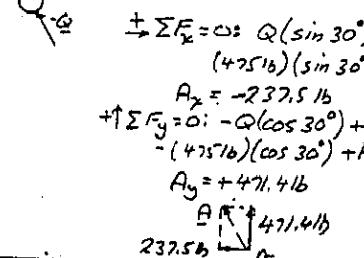 Q
+→ ΣFx = 0: Q(sin 30°
(475 lb)(sin 30°
Ax = -237.5 lb
+↑ ΣFy = 0: -Q(cos 30°) +
-(475 lb)(cos 30°) +
Ay = +471.4 lb
A 471.4 lb
237.5 lb